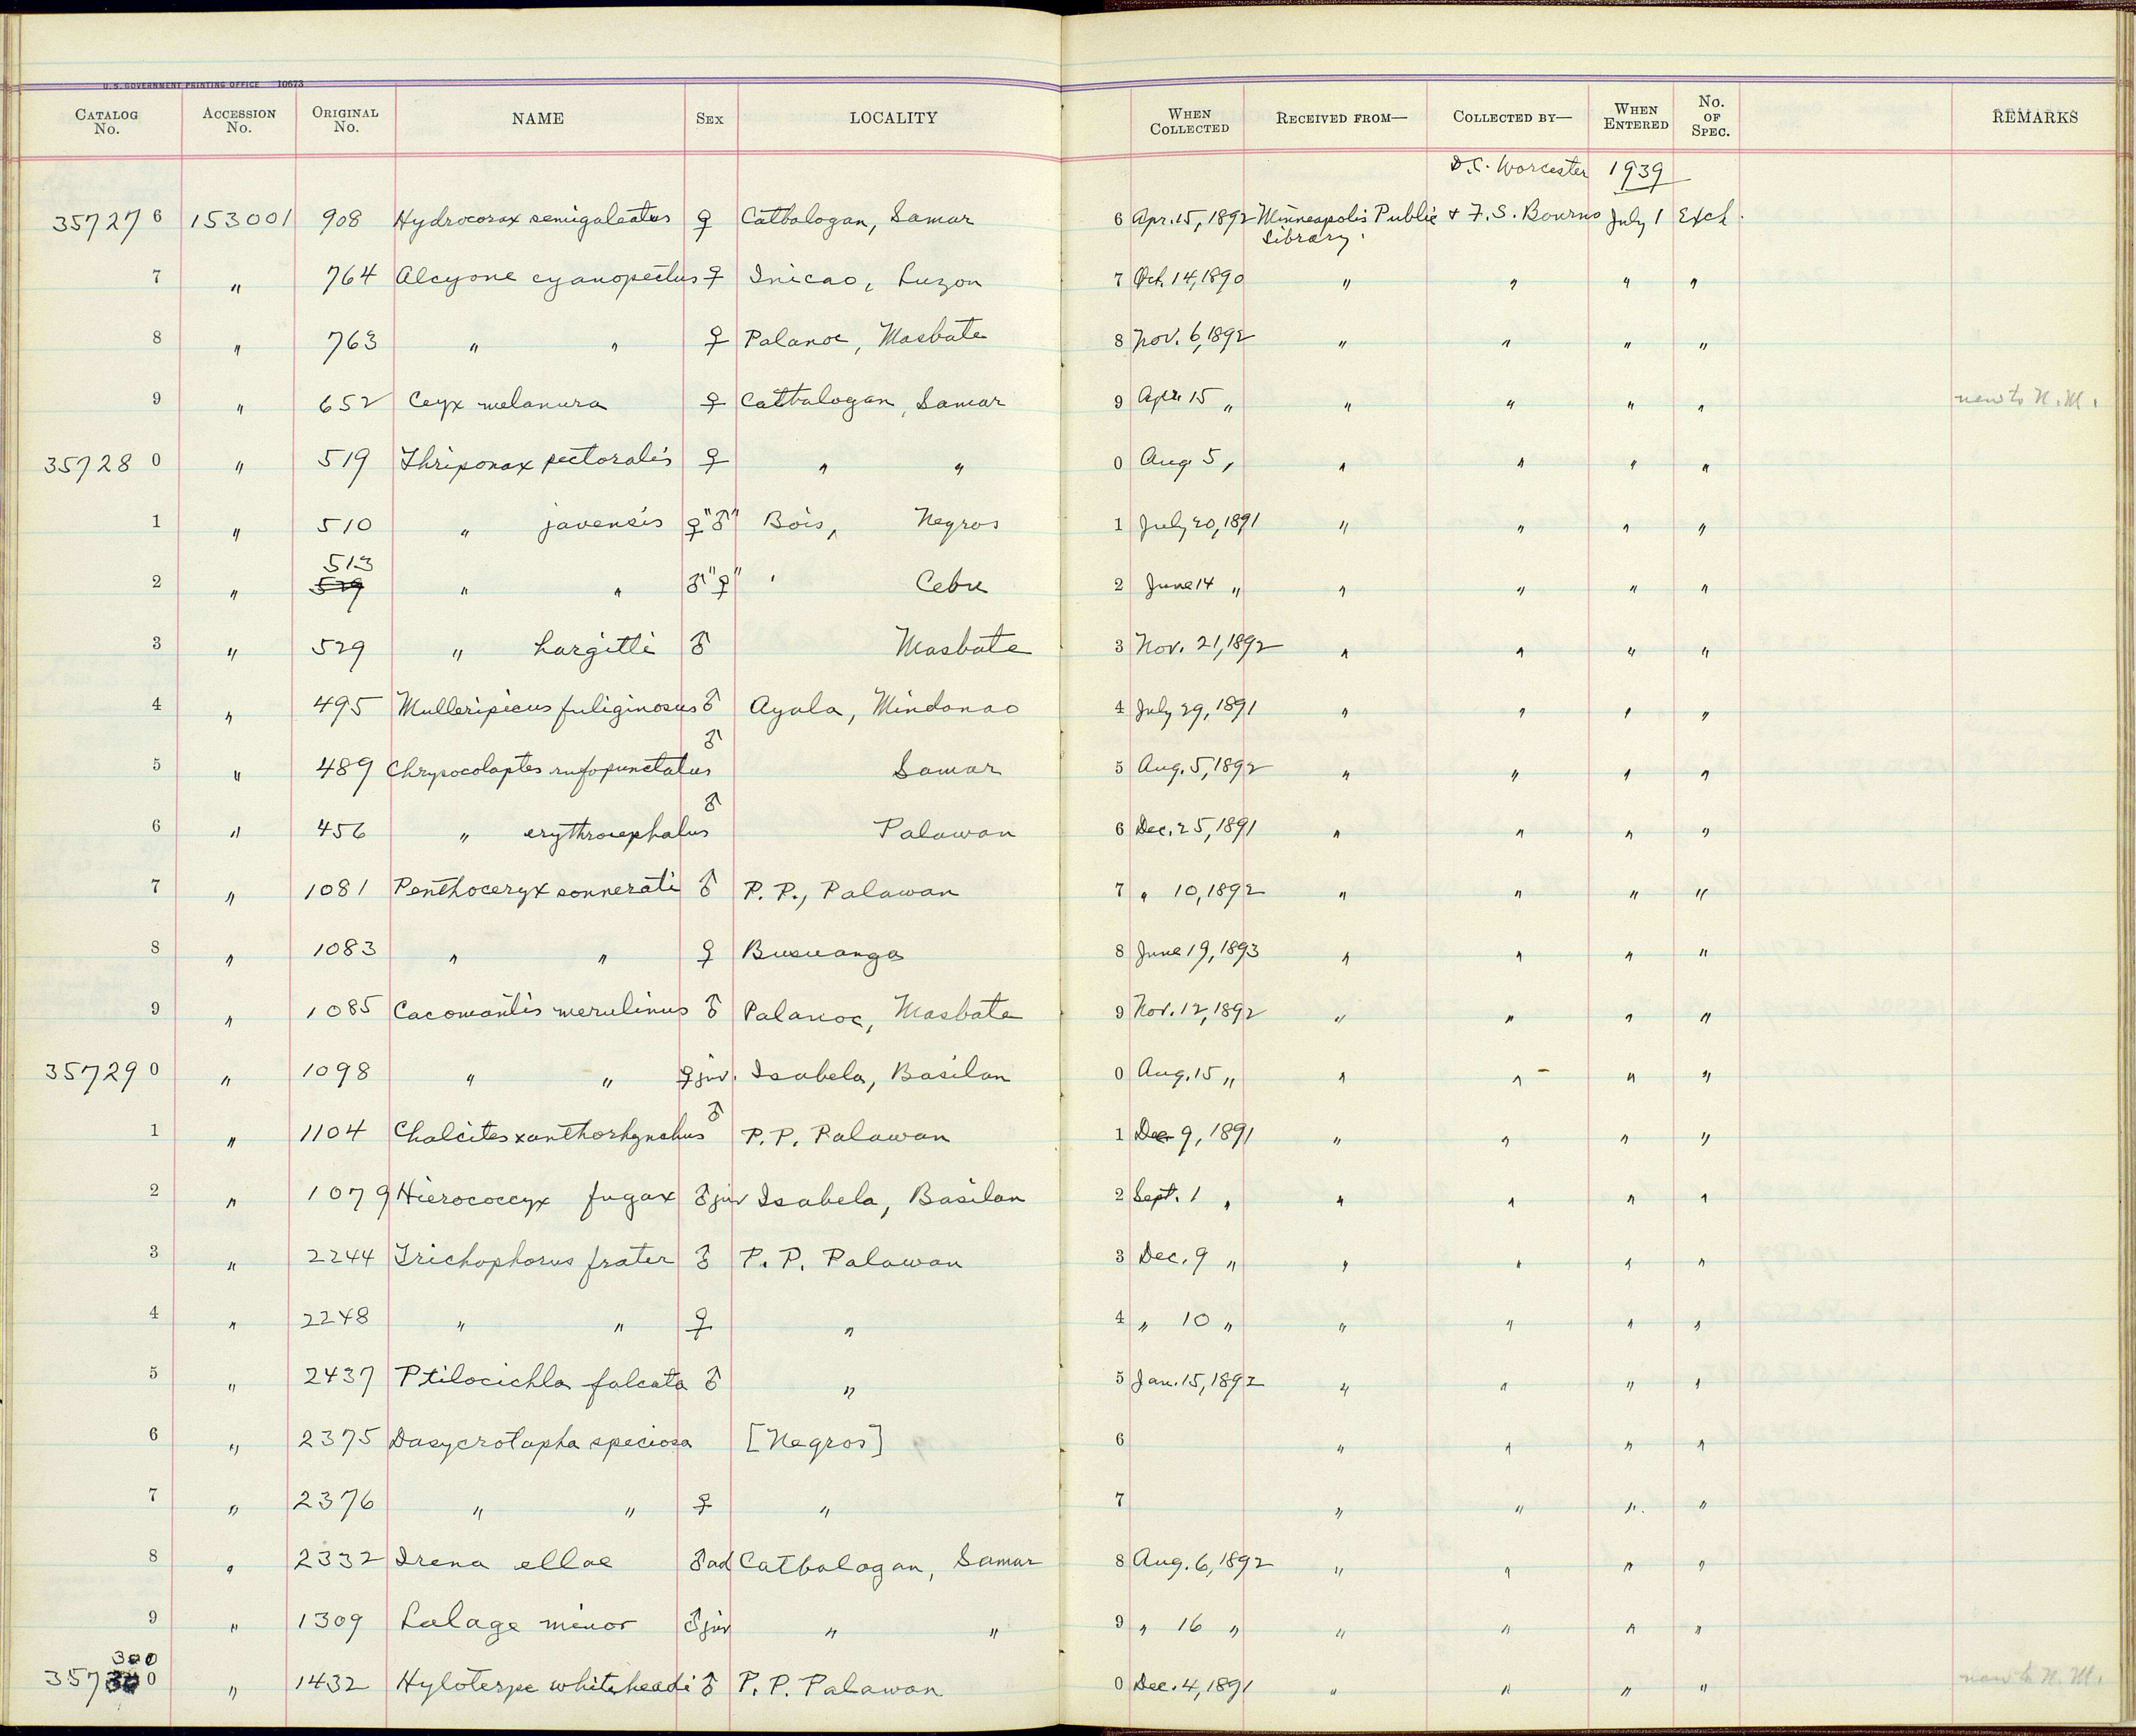 U.S. GOVERNMENT PRINTING OFFICE 10673
CATALOG No. ACCESSION No. ORIGINAL No. NAME SEX LOCALITY WHEN COLLECTED RECEIVED FROM— COLLECTED BY— WHEN ENTERED No. OF SPEC. REMARKS
D.C. Worcester 1939
357276 153001 908 Hydrocorax semigaleatus ♀ Catbalogan, Samar 6 Apr. 15, 1892 Minneapolis Public & F. S. Bourns July 1 Exch.
Library.
7 " 764 Alcyone cyanopectus ♀ Inicao, Luzon 7 Oct. 14, 1890 " " " "
8 " 763 " " ♀ Palanoc, Masbate 8 Nov. 6, 1892 " " " "
9 " 652 Ceyx melanura ♀ Catbalogan, Samar 9 Apr. 15 " " " " " new to N.M.
357280 " 519 Thriponax pectoralis ♀ " " 0 Aug 5, " " " "
1 " 510 " javensis ♀ "♂" Bois, Negros 1 July 20, 1891 " " " "
513
2 " 529 " " ♂ "♀" ' Cebu 2 June 14 " " " " "
3 " 529 " hargitti ♂ Masbate 3 Nov. 21, 1892 " " " "
4 " 495 Mulleripicus fuliginosus ♂ Ayala, Mindanao 4 July 29, 1891 " " " "
5 " 489 Chrysocolaptes rufopunctatus ♂ Samar 5 Aug. 5, 1892 " " " "
6 " 456 " erythrocephalus ♂ Palawan 6 Dec. 25, 1891 " " " "
7 " 1081 Penthoceryx sonnerati ♂ P. P., Palawan 7 " 10, 1892 " " " "
8 " 1083 " " ♀ Busuanga 8 June 19, 1893 " " " "
9 " 1085 Cacomantis merulinus ♂ Palanoc, Masbate 9 Nov. 12, 1892 " " " "
357290 " 1098 " " ♀ juv. Isabela, Basilan 0 Aug. 15 " " " " "
1 " 1104 Chalcites xanthorhynchus ♂ P. P. Palawan 1 Dec 9, 1891 " " " "
2 " 1079 Hierococcyx fugax ♂ juv Isabela, Basilan 2 Sept. 1 " " " " "
3 " 2244 Trichophorus frater ♂ P. P. Palawan 3 Dec. 9 " " " " "
4 " 2248 " " ♀ " 4 " 10 " " " " "
5 " 2437 Ptilocichla falcata ♂ " 5 Jan. 15, 1892 " " " "
6 " 2375 Dasycrotapha speciosa [Negros] 6 " " " "
7 " 2376 " " ♀ " 7 " " " "
8 " 2332 Irena ellae ♂ ad Catbalogan, Samar 8 Aug. 6, 1892 " " " "
9 " 1309 Lalage minor ♂ juv " " 9 " 16 " " " " "
300
357300 " 1432 Hyloterpe whiteheadi ♂ P. P. Palawan 0 Dec. 4, 1891 " " " " new to N.M.